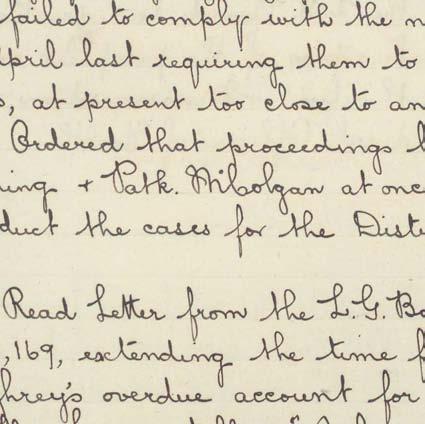 failed to comply with the n
April last requiring them to
s, at present too close to an
Ordered that proceedings b
ning + Patk. at once
duct the cases for the Dist
Read Letter from the L.G. Bo
,169, extending the time f
hrey's overdue account for